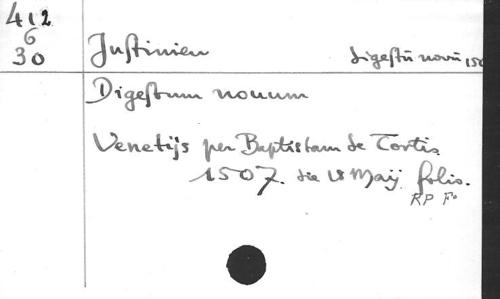 412
6
30
Justinien Digestū novū 150
Digestum nouum
Venetijs per Baptistam de Tortis
1507. die 18 Maij. folio.
RP F°